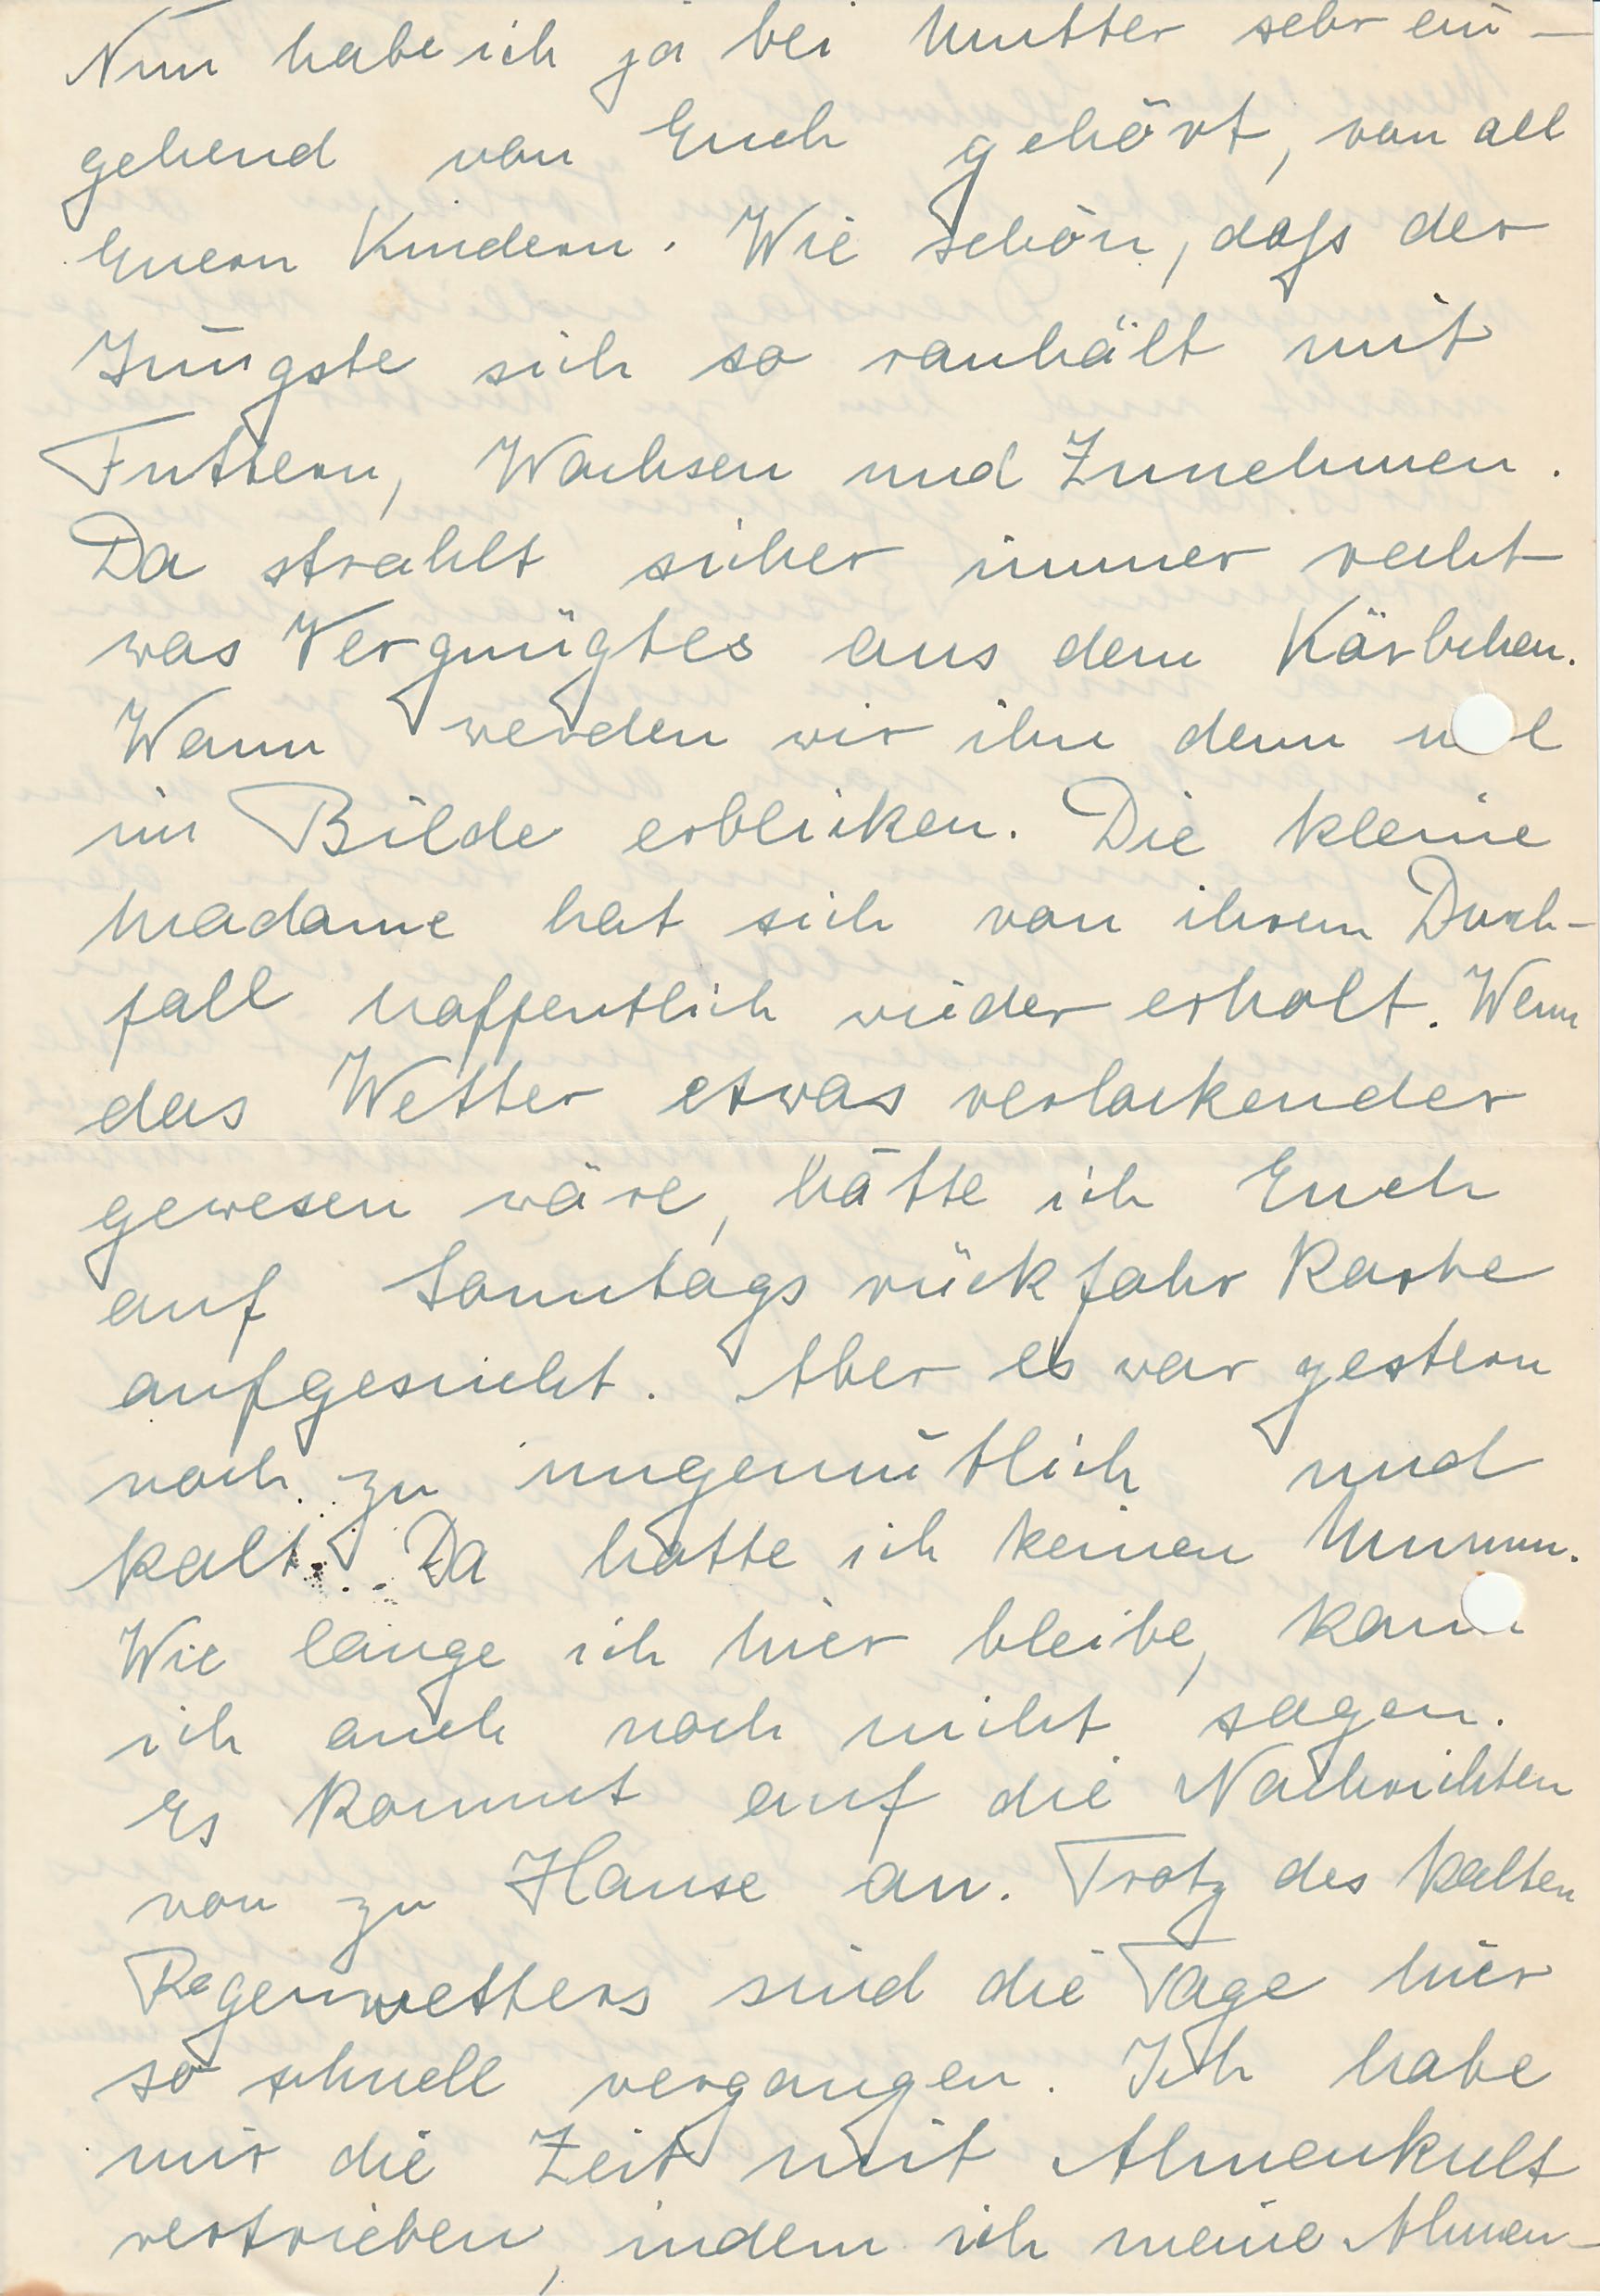 Nun habe ich ja bei Mutter sehr ein-
gehend von Euch gehört, von all
Euern Kindern. Wie schön, daß der
Jüngste sich so ranhält mit
Futtern, Wachsen und Zunehmen.
Da strahlt sicher immer recht
was Vergnügtes aus dem Körbchen.
Wann werden wir ihn denn mal
im Bilde erblicken. Die kleine
Madame hat sich von ihrem Durch-
fall hoffentlich wieder erholt. Wenn
das Wetter etwas verlockender
gewesen wäre, hätte ich Euch
auf Sonntagsrückfahrkarte
aufgesucht. Aber es war gestern
noch zu ungemütlich und
kalt. Da hatte ich keinen Mumm.
Wie lange ich hier bleibe, kann
ich auch noch nicht sagen.
Es kommt auf die Nachrichten
von zu Hause an. Trotz des kalten
Regenwetters sind die Tage hier
so schnell vergangen. Ich habe
mir die Zeit mit Ahnenkult
vertrieben, indem ich meine Ahnen-